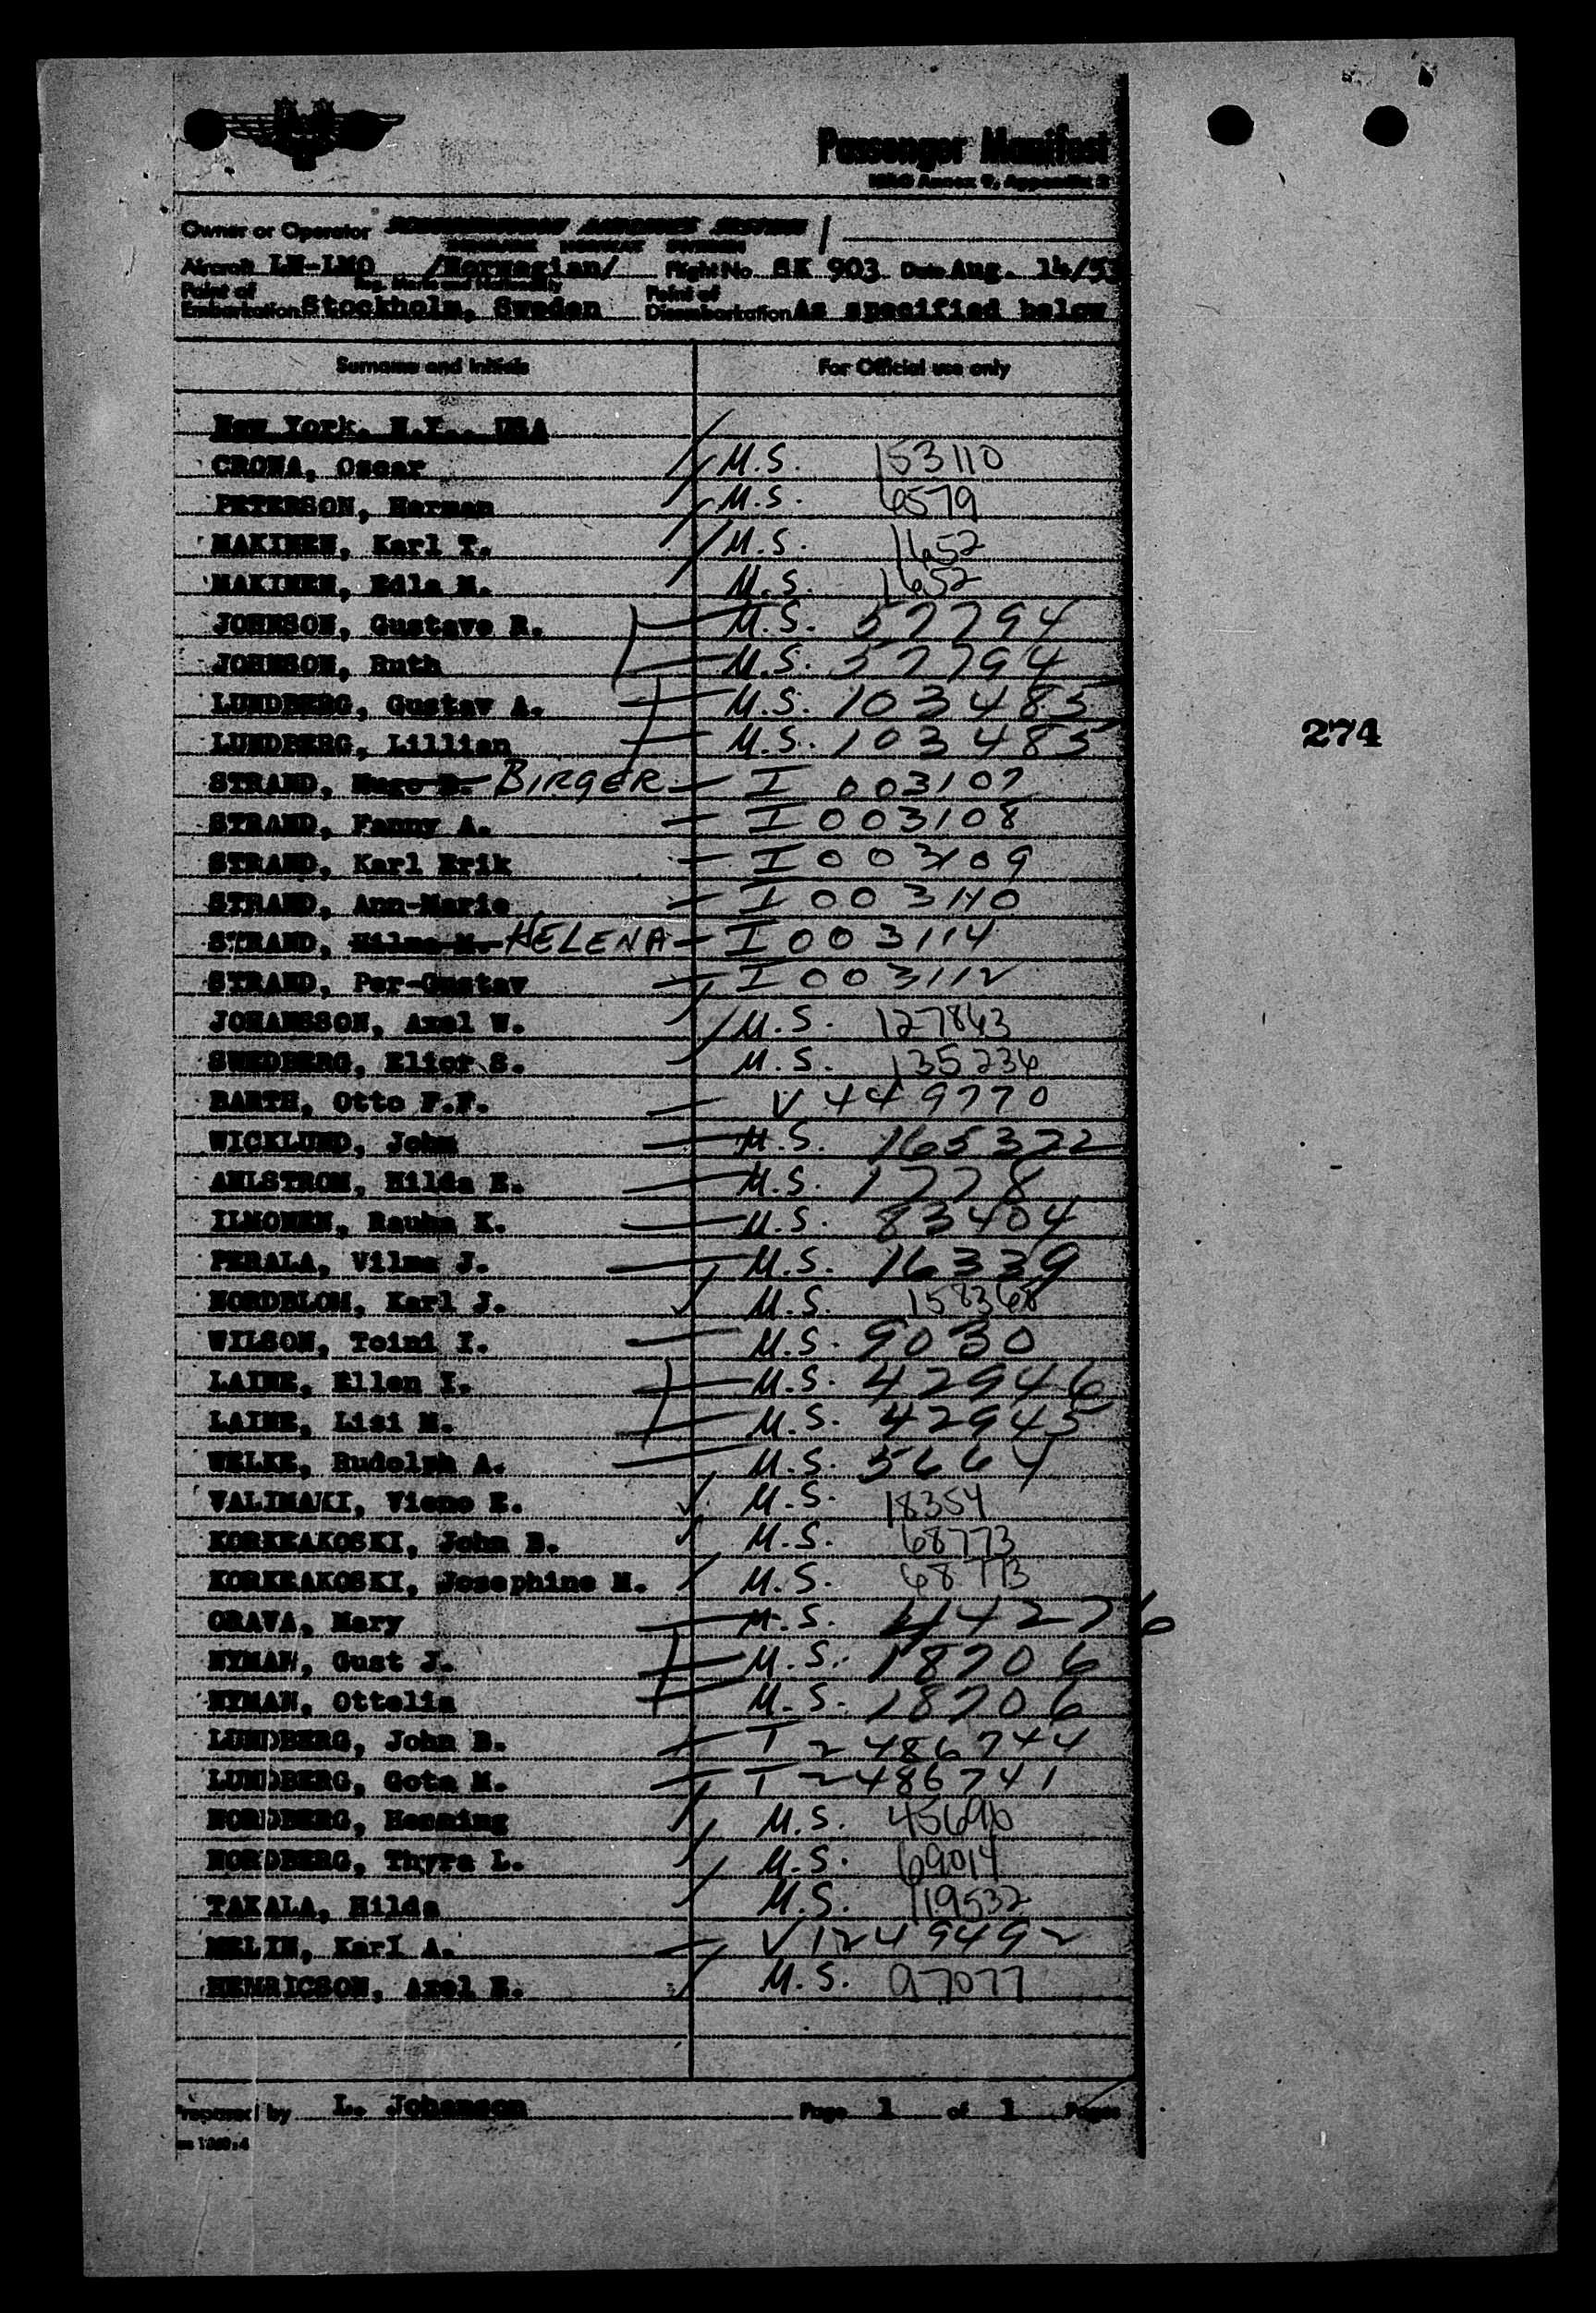 Passenger Manifest
ICAO Annex 9, Appendix 3
Owner or Operator SCANDINAVIAN AIRLINES SYSTEM
DENMARK NORWAY SWEDEN
Aircraft LN-LMO /Norwegian/ Flight No. SK 903 Date Aug. 14/53
Reg. Marks and Nationality
Point of Embarkation Stockholm, Sweden Point of Disembarkation As specified below
Surname and Initials For Official use only
New York, N.Y., USA
CRONA, Oscar M.S. 153110
PETERSON, Herman M.S. 6579
MAKINEN, Karl T. M.S. 1652
MAKINEN, Edla M. M.S. 1652
JOHNSON, Gustave R. M.S. 57794
JOHNSON, Ruth M.S. 57794
LUNDBERG, Gustav A. M.S. 103485
LUNDBERG, Lillian M.S. 103485
STRAND, BIRGER I 003107
STRAND, Fanny A. I 003108
STRAND, Karl Erik I 003109
STRAND, Ann-Marie I 003110
STRAND, HELENA I 003114
STRAND, Per-Gustav I 003112
JOHANSSON, Axel W. M.S. 127863
SWEDBERG, Elior S. M.S. 135236
BARTH, Otto F.F. V 449770
WICKLUND, John M.S. 165322
AHLSTROM, Hilda E. M.S. 1778
ILMONEN, Rauha K. M.S. 83404
PERALA, Vilma J. M.S. 16339
NORDBLOM, Karl J. M.S. 158368
WILSON, Toini I. M.S. 9030
LAINE, Ellen I. M.S. 42946
LAINE, Lisi M. M.S. 42945
WELKE, Rudolph A. M.S. 5664
VALIMAKI, Vieno E. M.S. 18354
KORKEAKOSKI, John B. M.S. 68773
KORKEAKOSKI, Josephine M. M.S. 68773
ORAVA, Mary M.S. 44276
NYMAN, Gust J. M.S. 18706
NYMAN, Ottelia M.S. 18706
LUNDBERG, John B. T 2486744
LUNDBERG, Gota M. T 2486741
NORDBERG, Henning M.S. 45696
NORDBERG, Thyra L. M.S. 69014
TAKALA, Hilda M.S. 119532
MELIN, Karl A. V 1249492
HENRICSON, Axel E. M.S. 97077
Prepared by L. Johanson Page 1 of 1 Pages
274